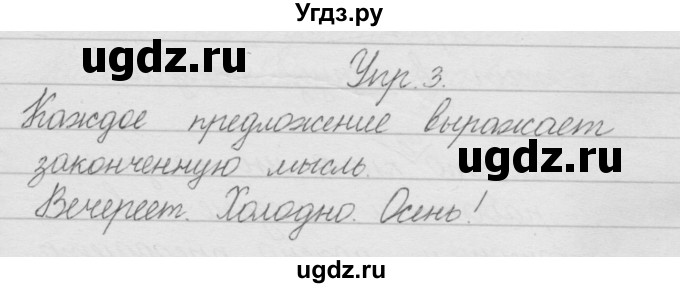 Угдз.ру
ugdz.ru
Упр. 3.
Каждое предложение выражает
ugdz.ru
законченную мысль.
Вечереет. Холодно. Осень!
ugdz.ru